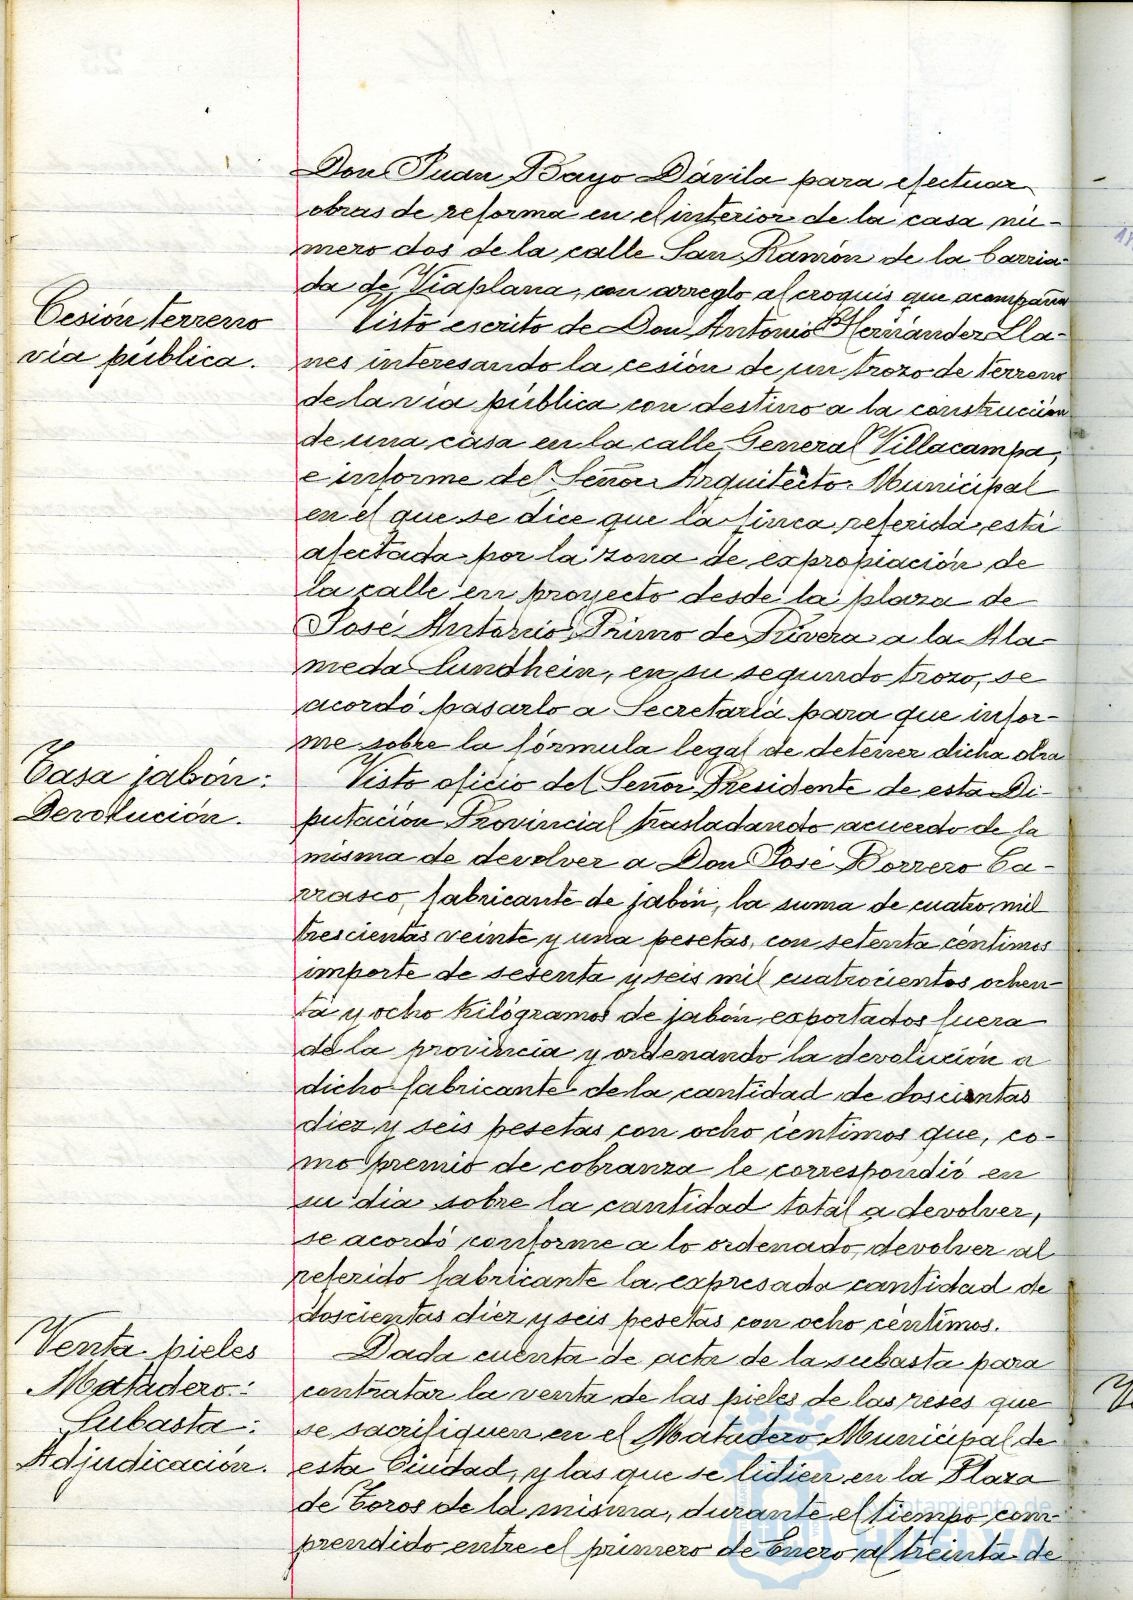 Don Juan Bayo Dávila para efectuar
obras de reforma en el interior de la casa nú-
mero dos de la calle San Ramón de la barria-
da de Viaplana, con arreglo al croquis que acompaña
Cesión terreno
vía pública.
Visto escrito de Don Antonio Hernández Lla-
nes interesando la cesión de un trozo de terreno
de la vía pública con destino a la construcción
de una casa en la calle General Villacampa,
e informe del Señor Arquitecto Municipal
en el que se dice que la finca referida está
afectada por la zona de expropiación de
la calle en proyecto desde la plaza de
José Antonio Primo de Rivera a la Ala-
meda Sundhein, en su segundo trozo, se
acordó pasarlo a Secretaría para que infor-
me sobre la fórmula legal de detener dicha obra
Tasa jabón:
Devolución.
Visto oficio del Señor Presidente de esta Di-
putación Provincial trasladando acuerdo de la
misma de devolver a Don José Borrero Ca-
rrasco, fabricante de jabón, la suma de cuatro mil
trescientas veinte y una pesetas, con setenta céntimos
importe de sesenta y seis mil cuatrocientos ochen-
ta y ocho kilógramos de jabón exportados fuera
de la provincia y ordenando la devolución a
dicho fabricante de la cantidad de doscientas
diez y seis pesetas con ocho céntimos que, co-
mo premio de cobranza le correspondió en
su día sobre la cantidad total a devolver,
se acordó conforme a lo ordenado, devolver al
referido fabricante la expresada cantidad de
doscientas diez y seis pesetas con ocho céntimos.
Venta pieles
Matadero:
Subasta:
Adjudicación.
Dada cuenta de acta de la subasta para
contratar la venta de las pieles de las reses que
se sacrifiquen en el Matadero Municipal de
esta Ciudad, y las que se lidien en la Plaza
de Toros de la misma, durante el tiempo com-
prendido entre el primero de Enero al treinta de
Ayuntamiento de
HUELVA